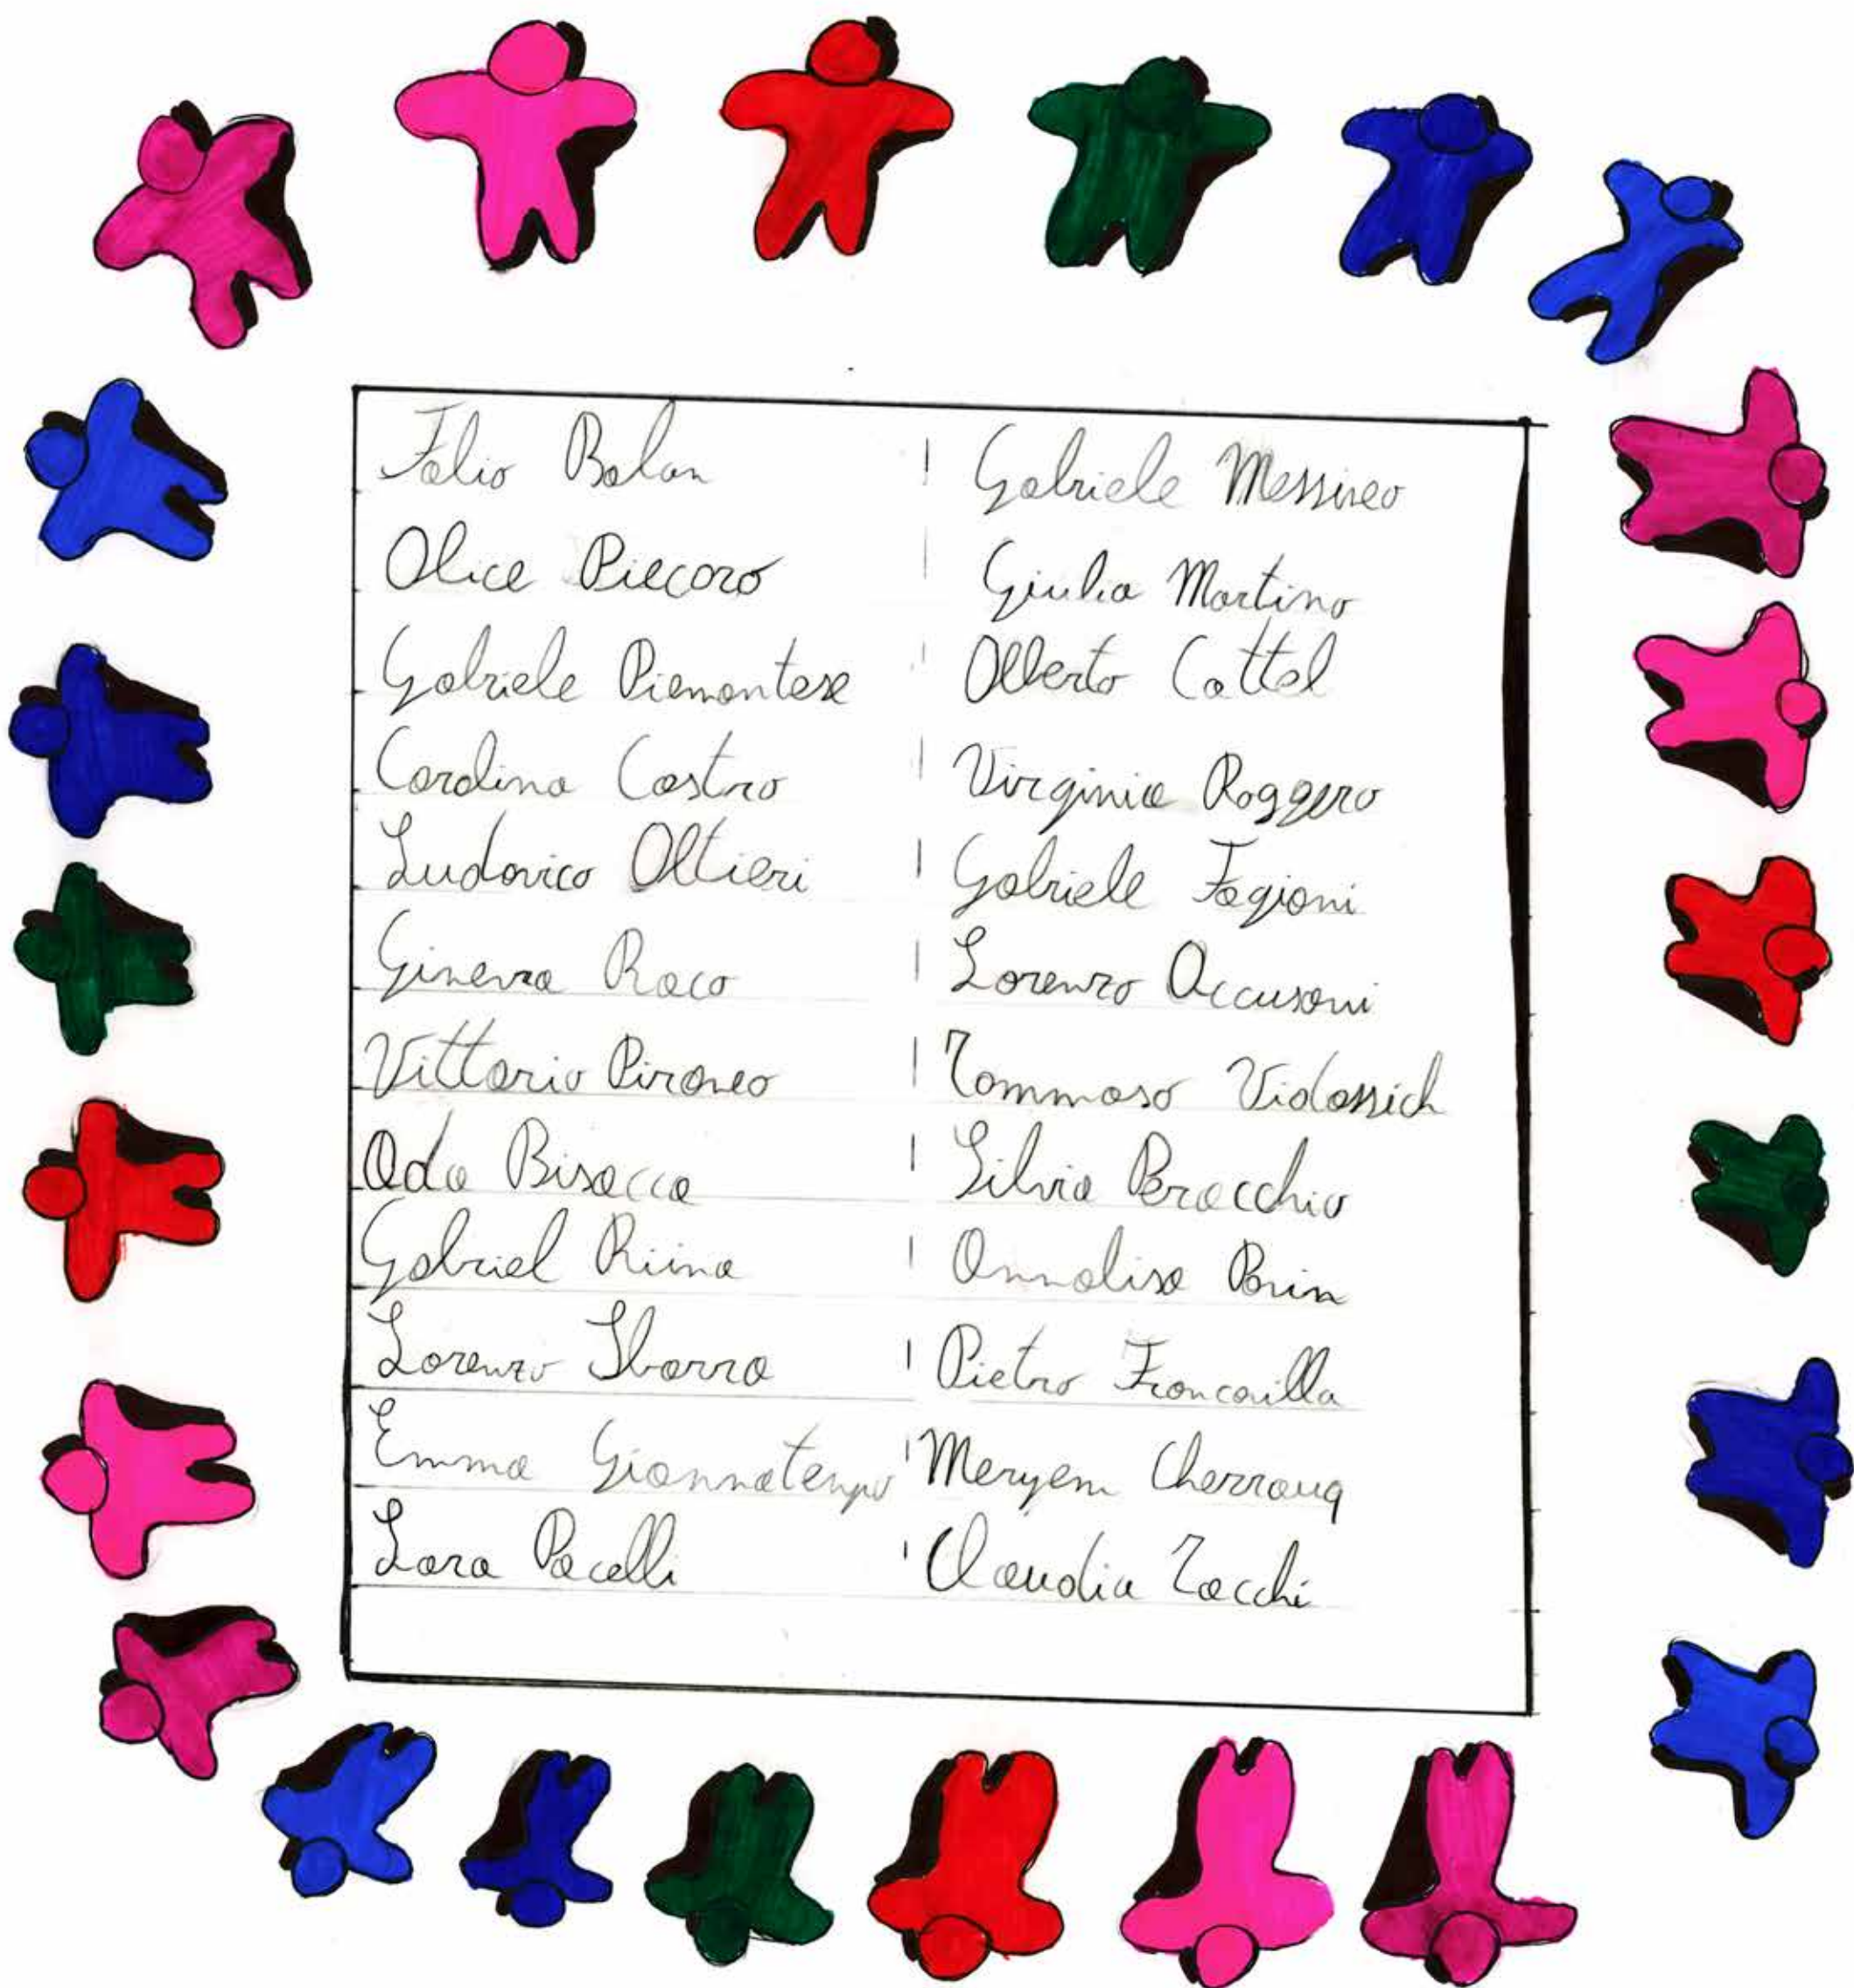 Fabio Balan
Alice Piecoro
Gabriele Piemontese
Carolina Castro
Ludovico Altieri
Ginevra Raco
Vittorio Piraneo
Ada Bisacca
Gabriel Riina
Lorenzo Ibarra
Emma Giannatempo
Lara Pacelli
Gabriele Messineo
Giulia Martino
Alberto Cattel
Virginia Roggero
Gabriele Fagioni
Lorenzo Accusani
Tommaso Vidossich
Silvia Peracchio
Annalisa Parin
Pietro Francavilla
Meryem Cherrouq
Claudia Tacchi